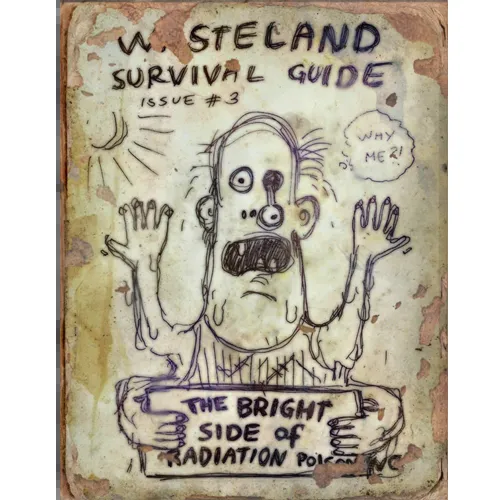 W. STELAND
SURVIVAL GUIDE
ISSUE # 3
WHY
ME?!
THE BRIGHT
SIDE of
RADIATION